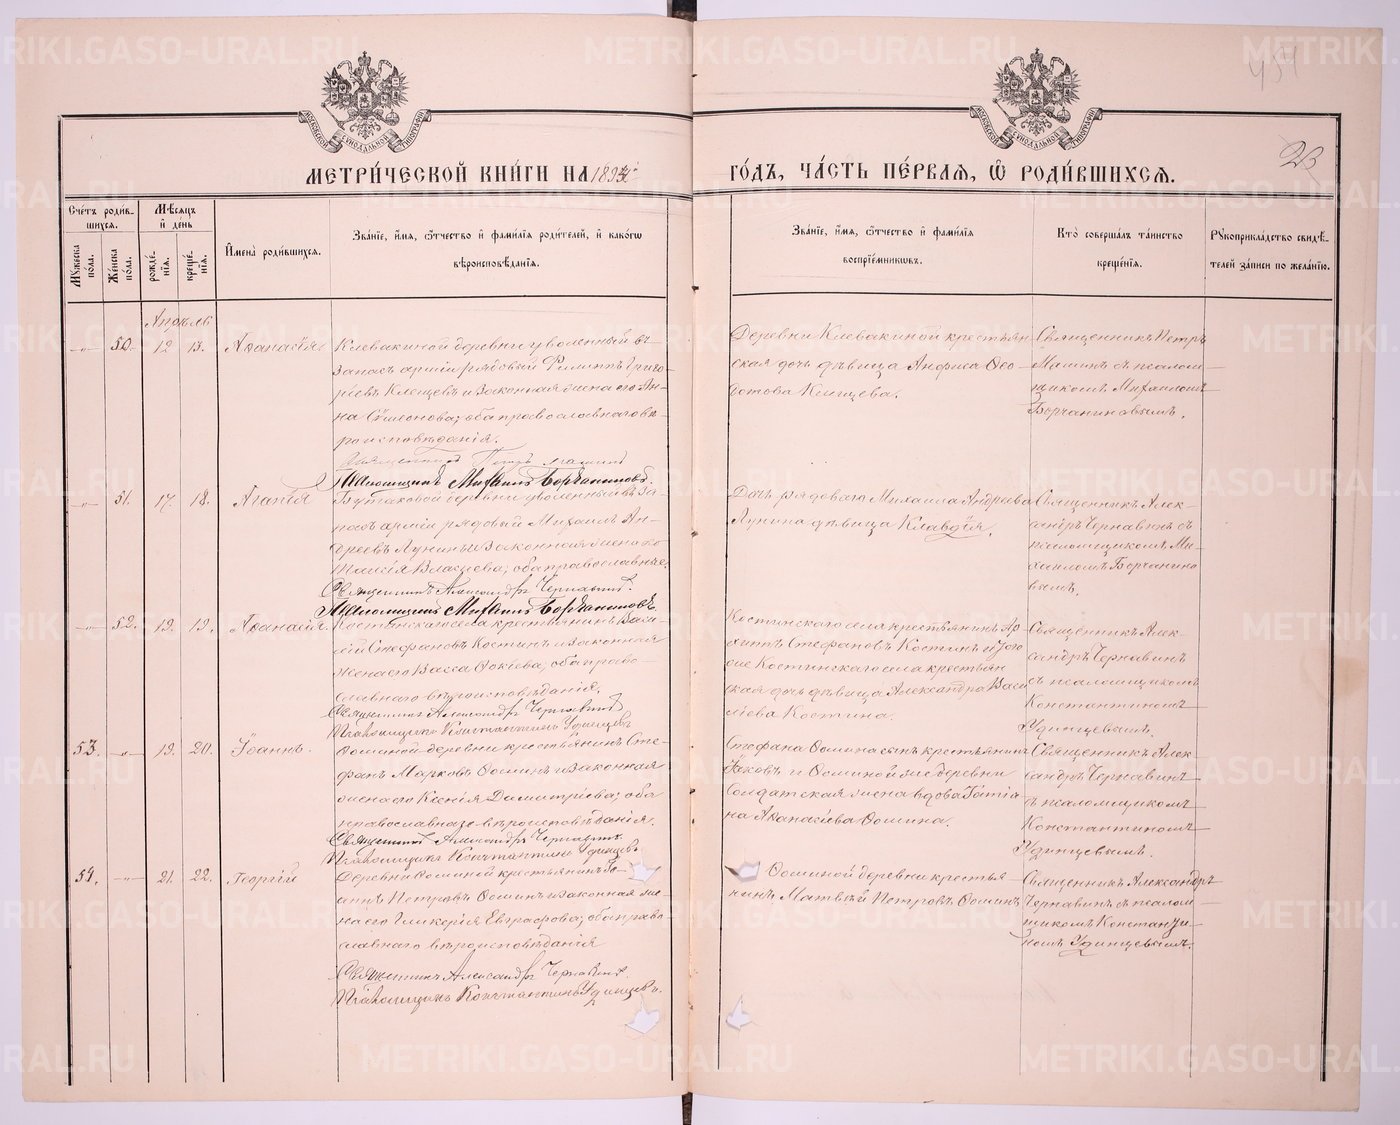 454
23
МОСКОВСКОЙ СѴНОДАЛЬНОЙ ТИПОГРАФІИ
МОСКОВСКОЙ СѴНОДАЛЬНОЙ ТИПОГРАФІИ
МЕТРИ́ЧЕСКОЙ КНИ́ГИ НА 1894 ГО́ДЪ, ЧА́СТЬ ПЕ́РВАЯ, Ѽ РОДИ́ВШИХСЯ.
Сче́тъ роди́в-
шихся.
Му́жеска по́ла.
Же́нска по́ла.
Мѣ́сяцъ и де́нь
рожде́-нія.
креще́-нія.
И҆мена̀ роди́вшихся.
Зва́ніе, и҆́мя, ѻ҆́тчество и҆ фами́лія роди́телей, и҆ како́гѡ
вѣроисповѣ́данія.
Зва́ніе, и҆́мя, ѻ҆́тчество и҆ фами́лія
воспріе́мникѡвъ.
Кто̀ соверша́лъ та́инство
креще́нія.
Рꙋкоприкла́дство свидѣ́-
телей за́писи по жела́нію.
Апрѣль
-„- 50. 12 13. Аѳанасія
Клевакиной деревни уволенный въ
запасъ арміи рядовый Филиппъ Григо-
рьевъ Клещевъ и законная жена его Ан-
на Сѵмеонова; оба православнаго вѣ-
роисповѣданія.
Священникъ Петръ Мамин
Псаломщикъ Михаилъ Борчаниновъ.
Деревни Клевакиной крестьян-
ская дочь дѣвица Анфиса Ѳео-
дотова Клещева.
Священникъ Петръ
Маминъ съ псалом-
щикомъ Михаиломъ
Борчаниновымъ.
-„- 51. 17. 18. Агапія
Бутаковой деревни уволенный въ за-
пасъ арміи рядовый Михаилъ Ан-
дреевъ Лунинъ и законная жена его
Таисія Власіева; оба православные.
Священникъ Александръ Чернавинъ.
Псаломщикъ Михаилъ Борчаниновъ.
Дочь рядоваго Михаила Андреева
Лунина дѣвица Клавдія.
Священникъ Алек-
сандръ Чернавинъ съ
псаломщикомъ Ми-
хаиломъ Борчанино-
вымъ.
-„- 52. 19. 19. Аѳанасія.
Костинскаго села крестьянинъ Васи-
лій Стефановъ Костинъ и законная
жена его Васса Ѳокіева; оба право-
славнаго вѣроисповѣданія.
Священникъ Александръ Чернавинъ
Псаломщикъ Константинъ Удинцевъ
Костинскаго села крестьянинъ Ар-
хиппъ Стефановъ Костинъ и того
же Костинскаго села крестьян-
ская дочь дѣвица Александра Васи-
ліева Костина.
Священникъ Алек-
сандръ Чернавинъ
съ псаломщикомъ
Константиномъ
Удинцевымъ.
53. -„- 19. 20. Іоаннъ.
Ѳоминой деревни крестьянинъ Сте-
фанъ Марковъ Ѳоминъ и законная
жена его Ксенія Димитріева; оба
православнаго вѣроисповѣданія.
Священникъ Александръ Чернавинъ
Псаломщикъ Константинъ Удинцевъ
Стефана Ѳомина сынъ крестьянинъ
Іаковъ и Ѳоминой же деревни
солдатская жена вдова Татіа-
на Аѳанасіева Ѳомина.
Священникъ Алек-
сандръ Чернавинъ
съ псаломщикомъ
Константиномъ
Удинцевымъ.
54. -„- 21. 22. Георгій
Деревни Ѳоминой крестьянинъ Іо-
аннъ Петровъ Ѳоминъ и законная же-
на его Гликерія Евграфова; оба право-
славнаго вѣроисповѣданія
Священникъ Александръ Чернавинъ.
Псаломщикъ Константинъ Удинцевъ.
Ѳоминой деревни крестья-
нинъ Матвѣй Петровъ Ѳоминъ
Священникъ Александръ
Чернавинъ съ псалом-
щикомъ Константи-
номъ Удинцевымъ.
METRIKI.GASO-URAL.RU